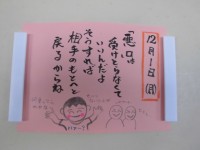 12月1日(月)
「悪口は
受けとらなくて
いいんだよ
そうすれば
相手のもとへと
戻るからね